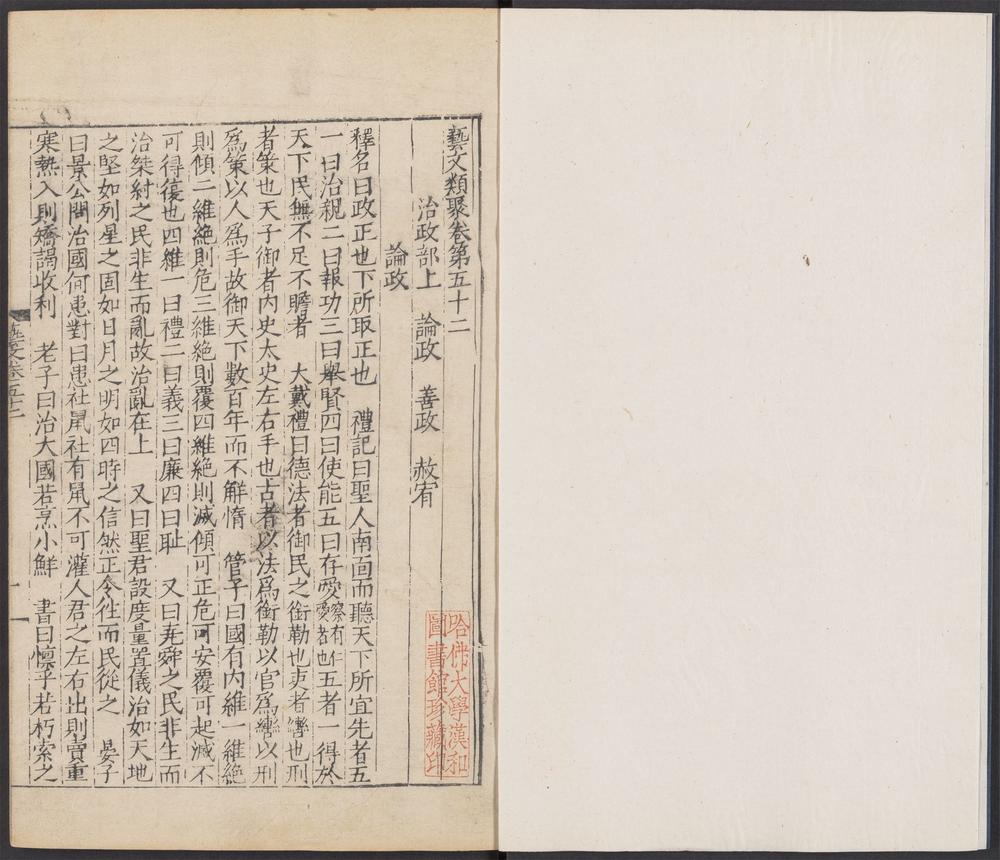 藝文類聚卷第五十二
治政部上　論政　善政　赦宥
論政
釋名曰政正也下所取正也　禮記曰聖人南面而聽天下所宜先者五
一曰治親二曰報功三曰舉賢四曰使能五曰存愛察有仁愛者也五者一得於
天下民無不足不贍者　大戴禮曰德法者御民之銜勒也吏者轡也刑
者策也天子御者內史太史左右手也古者以法爲銜勒以官爲轡以刑
爲策以人爲手故御天下數百年而不解惰　管子曰國有內維一維絕
則傾二維絕則危三維絕則覆四維絕則滅傾可正危可安覆可起滅不
可得復也四維一曰禮二曰義三曰廉四曰耻　又曰尭舜之民非生而
治桀紂之民非生而亂故治亂在上　又曰聖君設度量置儀治如天地
之堅如列星之固如日月之明如四時之信然正令往而民從之　晏子
曰景公問治國何患對曰患社鼠社有鼠不可灌人君之左右出則賣重
寒熱入則矯謁收利　老子曰治大國若烹小鮮　書曰懔乎若朽索之
藝文卷五十二
一
哈佛大學漢和
圖書館珍藏印